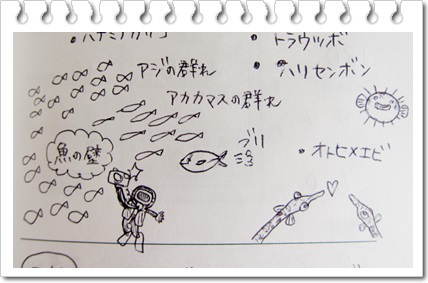 ・トラウツボ
アジの群れ
・ハリセンボン
アカカマスの群れ
魚の壁
ブリ
・オトヒメエビ